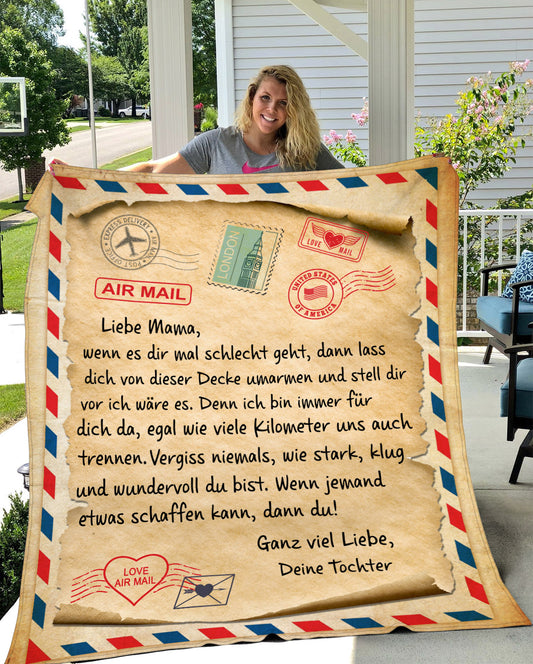 EXPRESS DELIVERY
VIA AIR MAIL
POST OFFICE
LONDON
LOVE MAIL
AIR MAIL
UNITED STATES
OF AMERICA
Liebe Mama,
wenn es dir mal schlecht geht, dann lass
dich von dieser Decke umarmen und stell dir
vor ich wäre es. Denn ich bin immer für
dich da, egal wie viele Kilometer uns auch
trennen. Vergiss niemals, wie stark, klug
und wundervoll du bist. Wenn jemand
etwas schaffen kann, dann du!
Ganz viel Liebe,
Deine Tochter
LOVE
AIR MAIL